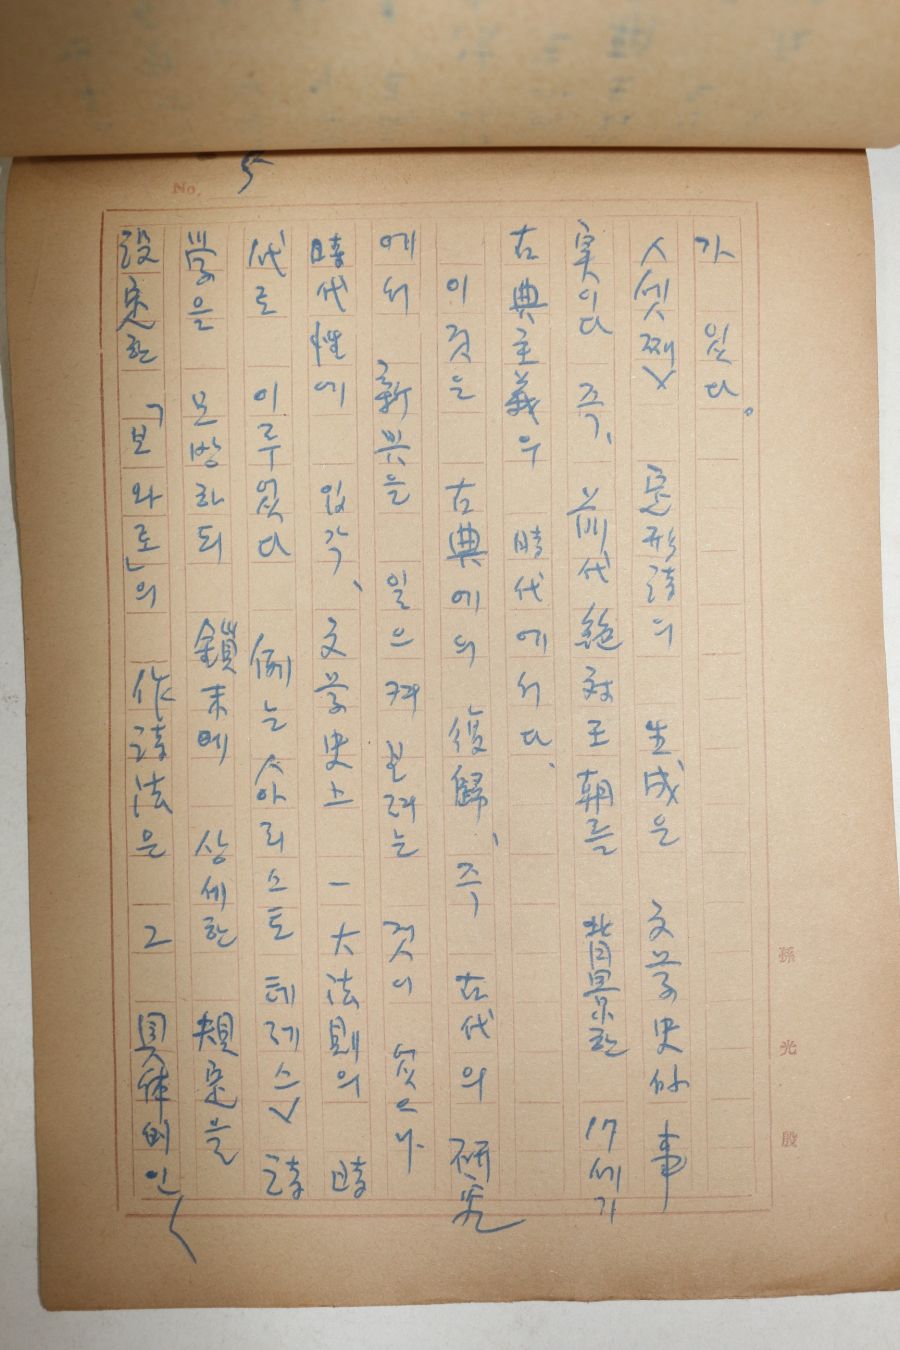 No. 5
가 있다。
<셋째> 定形詩의 生成은 文学史的 事
実이다 즉、前代絶対王朝를 背景한 17세기
古典主義의 時代에서다、
이것은 古典에의 復歸、즉 古代의 研究
에서 新兴을 일으켜 보려는 것이 있으나
時代性에 입각、文学史上 一大法則의 時
代로 이루었다 例는 <아리스토 테레스> 詩
学을 모방하되 末에 상세한 規定을
設定한 「보와로」의 作詩法은 그 具体的인
孫光殷